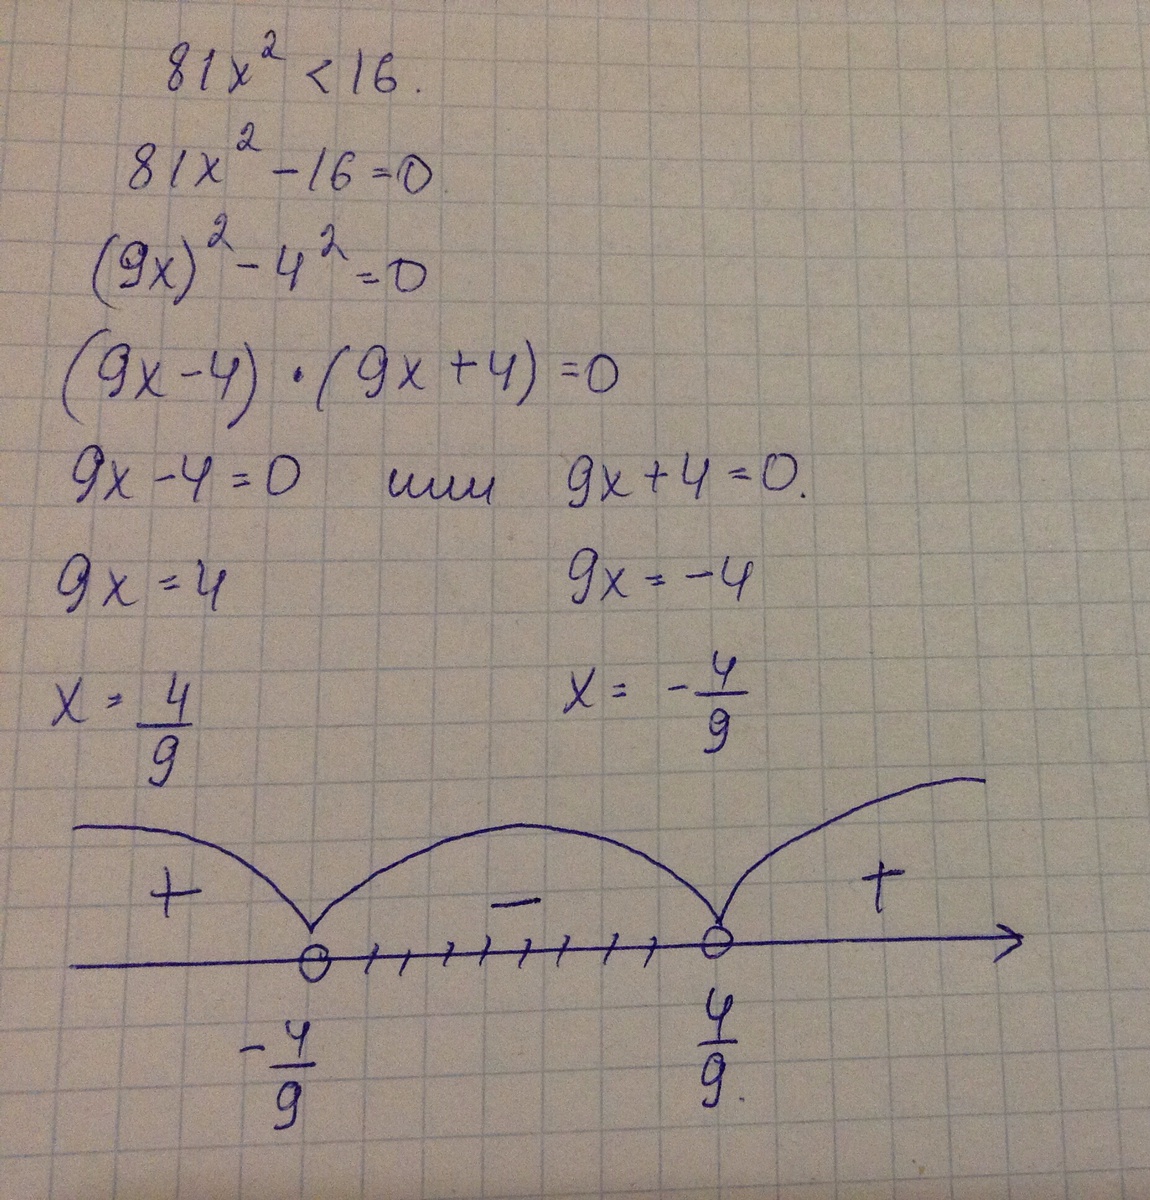 81x² < 16.
81x² - 16 = 0.
(9x)² - 4² = 0
(9x - 4) · (9x + 4) = 0
9x - 4 = 0 или 9x + 4 = 0.
9x = 4 9x = -4
x = 4/9 x = -4/9
+ - +
-4/9 4/9.